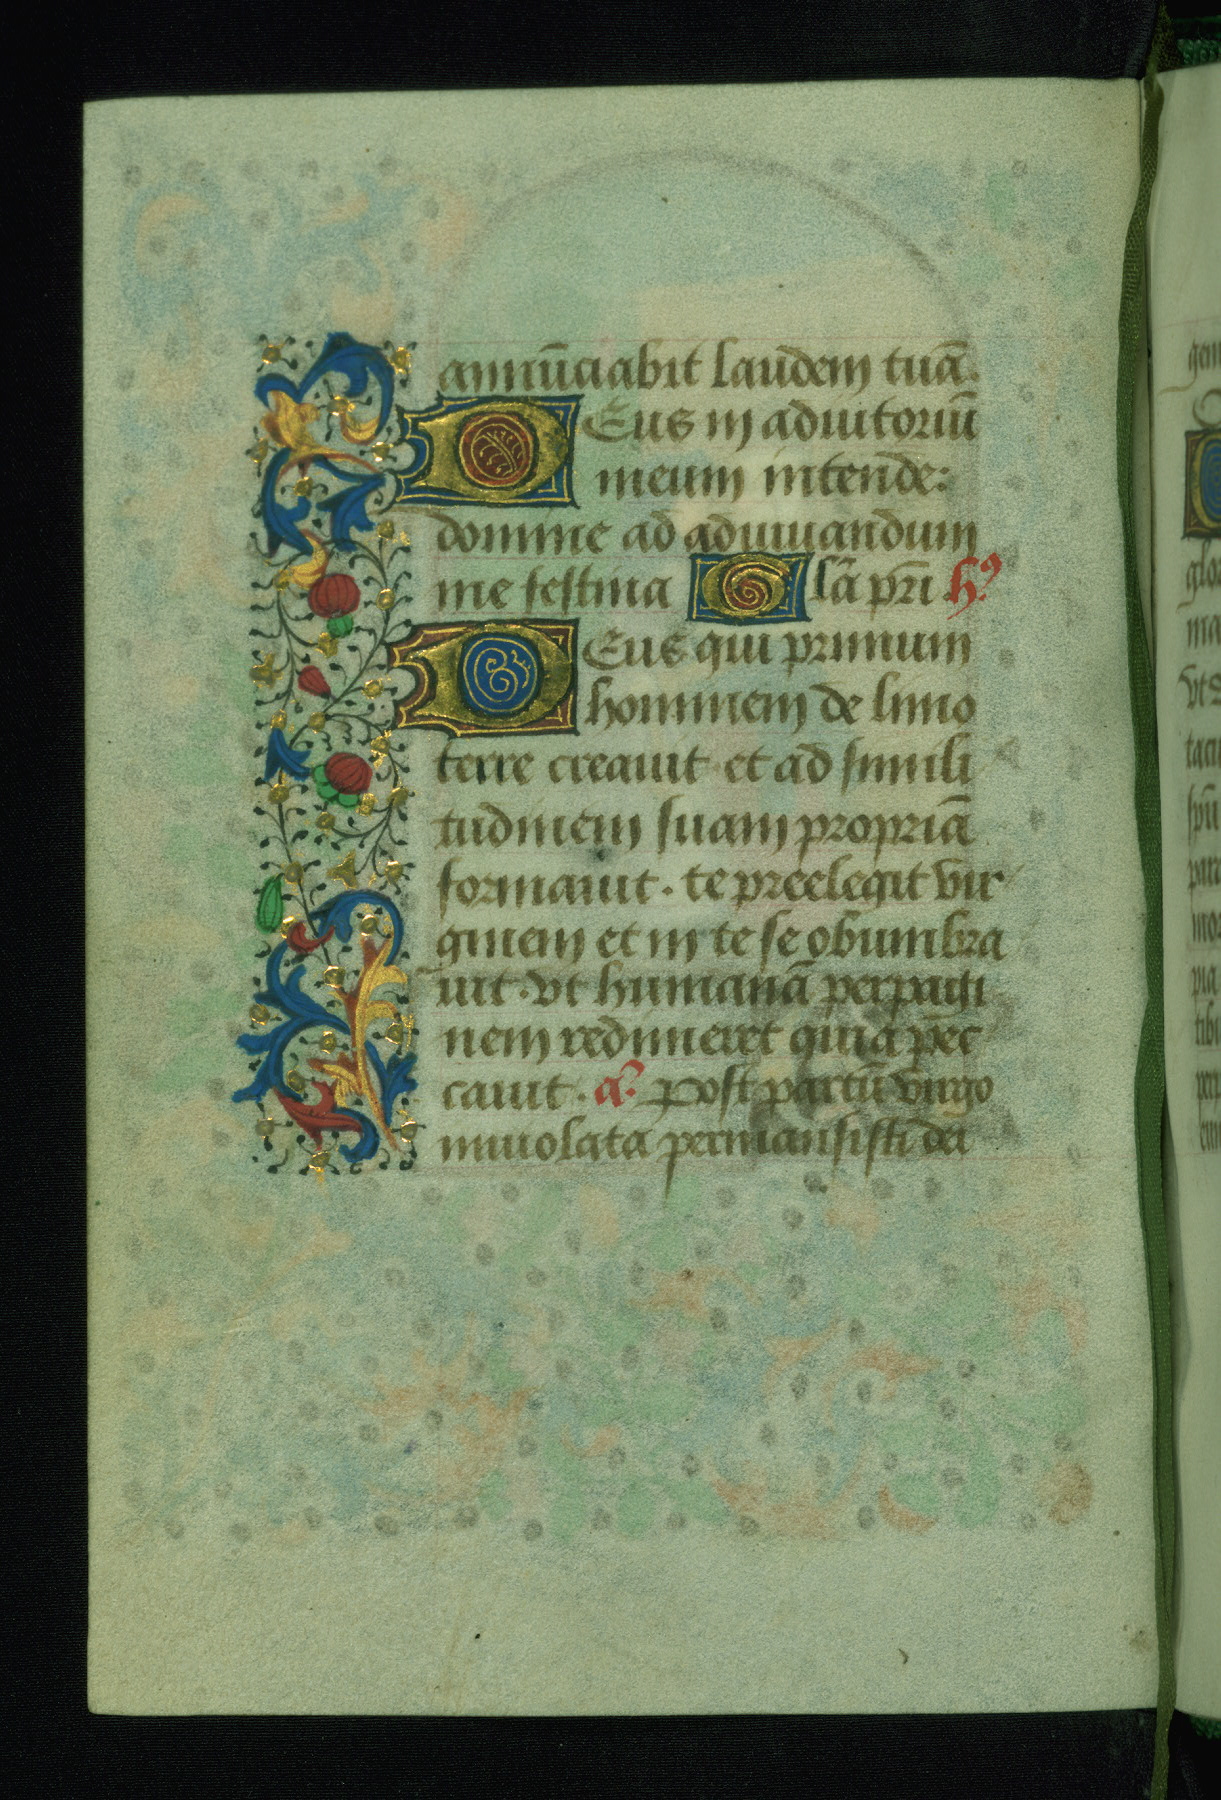 annūciabit laudem tuā.
Deus in adiutoriū
meum intende:
domine ad adiuuandum
me festina Glā pri. h⁹.
Deus qui primum
hominem de limo
terre creauit et ad simili
tudinem suam propriā
formauit. te preelegit vir
ginem et in te se obumbra
uit. vt humanā perpagi
nem redimeret quia pec
cauit. a᷎. Post partū virgo
inuiolata permansisti dei